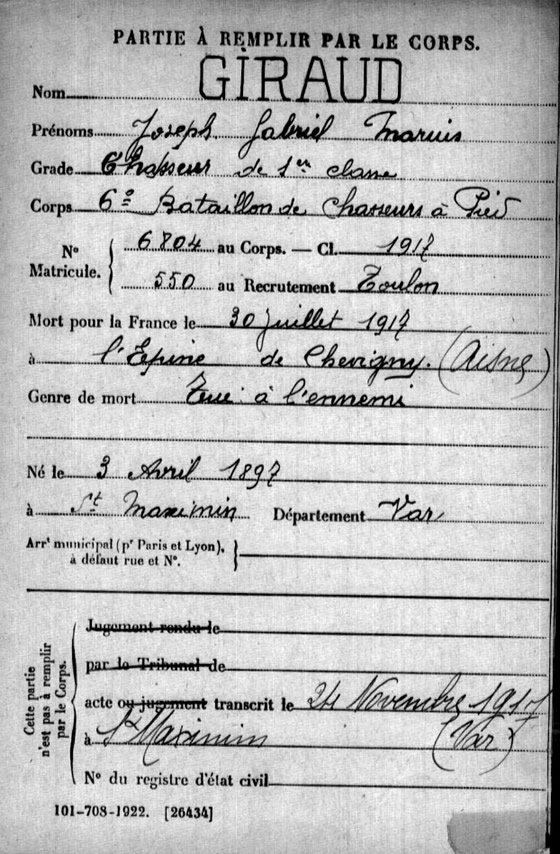 PARTIE À REMPLIR PAR LE CORPS.
Nom GIRAUD
Prénoms Joseph Gabriel Marius
Grade Chasseur de 1re classe
Corps 6e Bataillon de Chasseurs à Pied
N° Matricule. { 6804 au Corps. — Cl. 1917
550 au Recrutement Toulon
Mort pour la France le 30 juillet 1917
à l'Epine de Chevigny. (Aisne)
Genre de mort Tué à l'ennemi
Né le 3 Avril 1897
à St Maximin Département Var
Arrt municipal (pr Paris et Lyon), à défaut rue et N°. }
Cette partie n'est pas à remplir par le Corps. {
Jugement rendu le
par le Tribunal de
acte ou jugement transcrit le 24 Novembre 1917
à St Maximin (Var)
N° du registre d'état civil
101-708-1922. [26434]